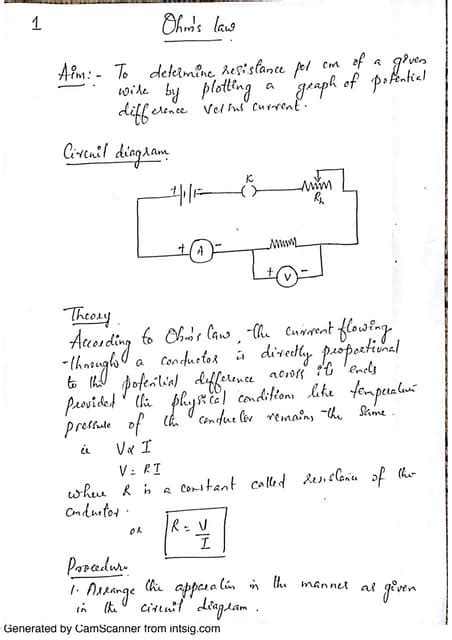 1
Ohm's law
Aim:- To determine resistance per cm of a given
wire by plotting a graph of potential
difference versus current.
Circuit diagram
K
+ -
Rh
+ A -
+ V -
Theory
According to Ohm's law, the current flowing
through a conductor is directly proportional
to the potential difference across its ends
provided the physical conditions like temperature
pressure of the conductor remains the same.
ie V∝ I
V = RI
where R is a constant called resistance of the
conductor.
or R = V/I
Procedure
1. Arrange the apparatus in the manner as given
in the circuit diagram.
Generated by CamScanner from intsig.com